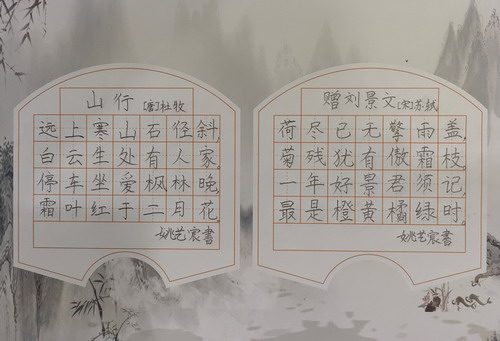 山行 [唐]杜牧
远上寒山石径斜,
白云生处有人家.
停车坐爱枫林晚,
霜叶红于二月花
姚艺宸書
赠刘景文 [宋]苏轼
荷尽已无擎雨盖,
菊残犹有傲霜枝.
一年好景君须记,
最是橙黄橘绿时.
姚艺宸書